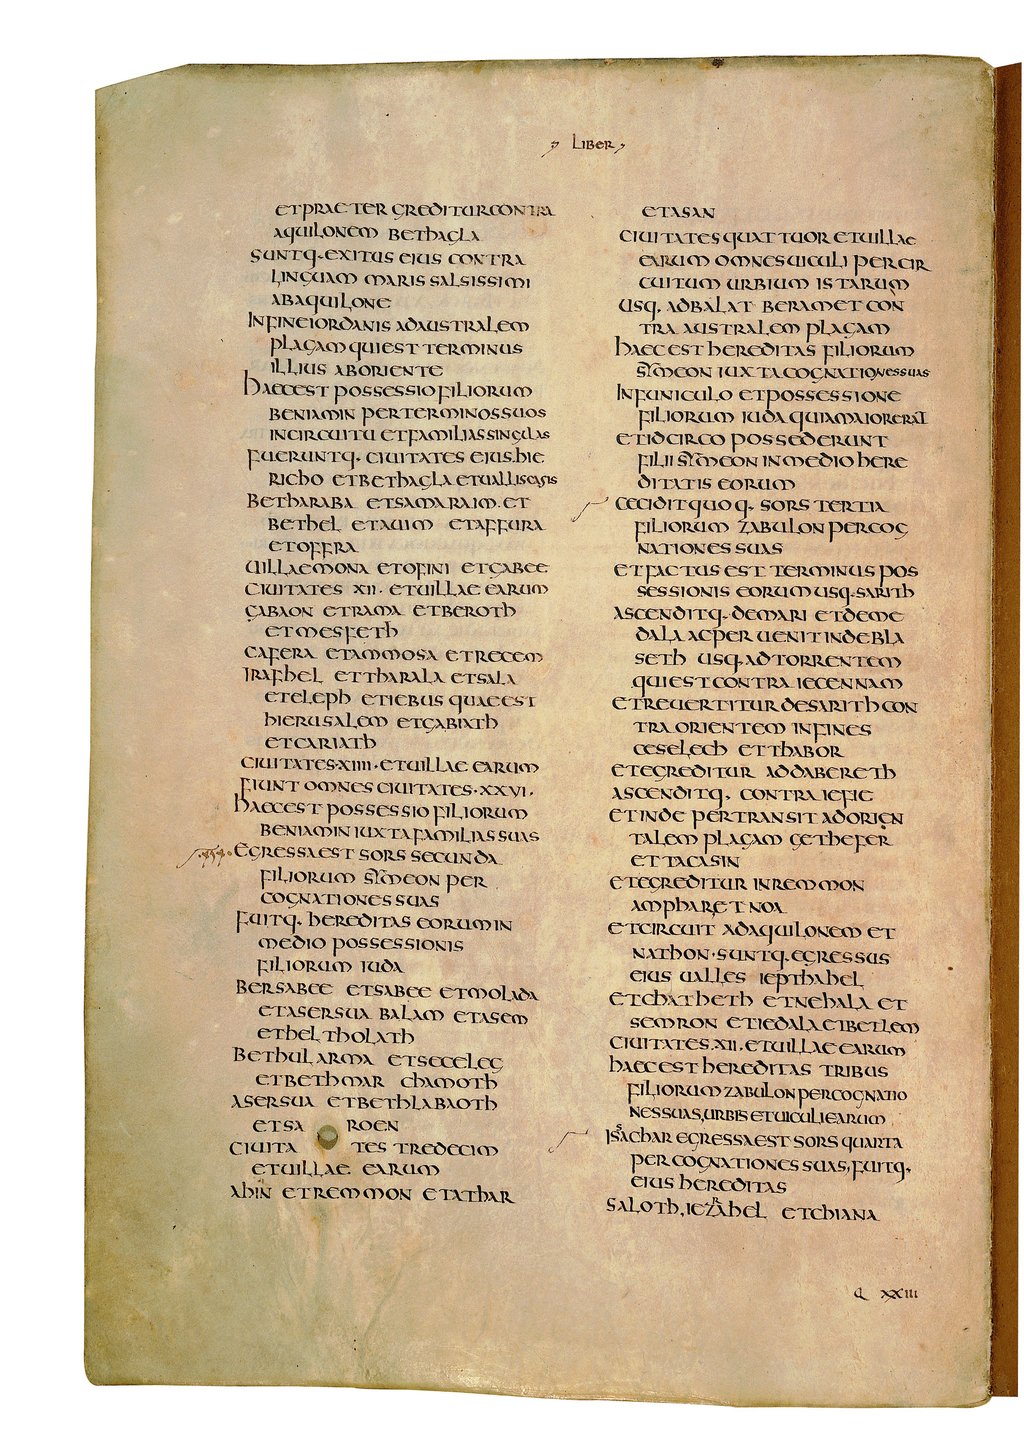 LIBER
ETPRAETERGREDITURCONTRA
AQUILONEM BETHAGLA
SUNTQ· EXITUS EIUS CONTRA
LINGUAM MARIS SALSISSIMI
ABAQUILONE
INFINEIORDANIS ADAUSTRALEM
PLAGAM QUIEST TERMINUS
ILLIUS ABORIENTE
HAECEST POSSESSIO FILIORUM
BENIAMIN PERTERMINOSSUOS
INCIRCUITU ETFAMILIASSINGULAS
FUERUNTQ· CIUITATES EIUS·HIE
RICHO ETBETHAGLA ETUALLISCASIS
BETHARABA ETSAMARAIM·ET
BETHEL ETAUIM ETAFFURA
ETOFFRA
UILLAEMONA ETOFINI ETGABEE
CIUITATES XII· ETUILLAE EARUM
GABAON ETRAMA ETBEROTH
ETMESFETH
CAFERA ETAMMOSA ETRECEM
IRAFHEL ETTHARALA ETSALA
ETELEPH ETIEBUS QUAEEST
HIERUSALEM ETGABIATH
ETCARIATH
CIUITATES·XIIII·ETUILLAE EARUM
FIUNT OMNES CIUITATES·XXVI·
HAECEST POSSESSIO FILIORUM
BENIAMIN IUXTAFAMILIAS SUAS
EGRESSAEST SORS SECUNDA
FILIORUM SYMEON PER
COGNATIONES SUAS
FUITQ· HEREDITAS EORUM IN
MEDIO POSSESSIONIS
FILIORUM IUDA
BERSABEE ETSABEE ETMOLADA
ETASERSUA BALAM ETASEM
ETHELTHOLATH
BETHULARMA ETSECELEG
ETBETHMAR CHAMOTH
ASERSUA ETBETHLABAOTH
ETSA ROEN
CIUITA TES TREDECIM
ETUILLAE EARUM
AHIN ETREMMON ETATHAR
ETASAN
CIUITATES QUATTUOR ETUILLAE
EARUM OMNES UICULI PERCIR
CUITUM URBIUM ISTARUM
USQ· ADBALAT BERAMET CON
TRA AUSTRALEM PLAGAM
HAEC EST HEREDITAS FILIORUM
SYMEON IUXTACOGNATIONESSUAS
INFUNICULO ETPOSSESSIONE
FILIORUM IUDA QUIAMAIORERAT
ETIDCIRCO POSSEDERUNT
FILII SYMEON INMEDIO HERE
DITATIS EORUM
CECIDITQUOQ· SORS TERTIA
FILIORUM ZABULON PERCOG
NATIONES SUAS
ETFACTUS EST TERMINUS POS
SESSIONIS EORUM USQ·SARITH
ASCENDITQ· DEMARI ETDEME
DALA ACPERUENIT INDEBLA
SETH USQ·ADTORRENTEM
QUIEST CONTRA IECENNAM
ETREUERTITUR DESARITH CON
TRAORIENTEM INFINES
CESELECH ETTHABOR
ETEGREDITUR ADDABERETH
ASCENDITQ· CONTRA IEFIE
ETINDE PERTRANSIT ADORIEN
TALEM PLAGAM GETHEFER
ETTACASIN
ETEGREDITUR INREMMON
AMPHARET NOA
ETCIRCUIT ADAQUILONEM ET
NATHON·SUNTQ·EGRESSUS
EIUS UALLES IEPTHAHEL
ETCHATHETH ETNEHALA ET
SEMRON ETIEDALA ETBETLEM
CIUITATES·XII·ETUILLAE EARUM
HAEC EST HEREDITAS TRIBUS
FILIORUM ZABULON PERCOGNATIO
NES SUAS, URBIS ETUICULI EARUM
ISSACHAR EGRESSAEST SORS QUARTA
PERCOGNATIONES SUAS, FUITQ·
EIUS HEREDITAS
SALOTH, IEZRAHEL ETCHIANA
Q XXIII